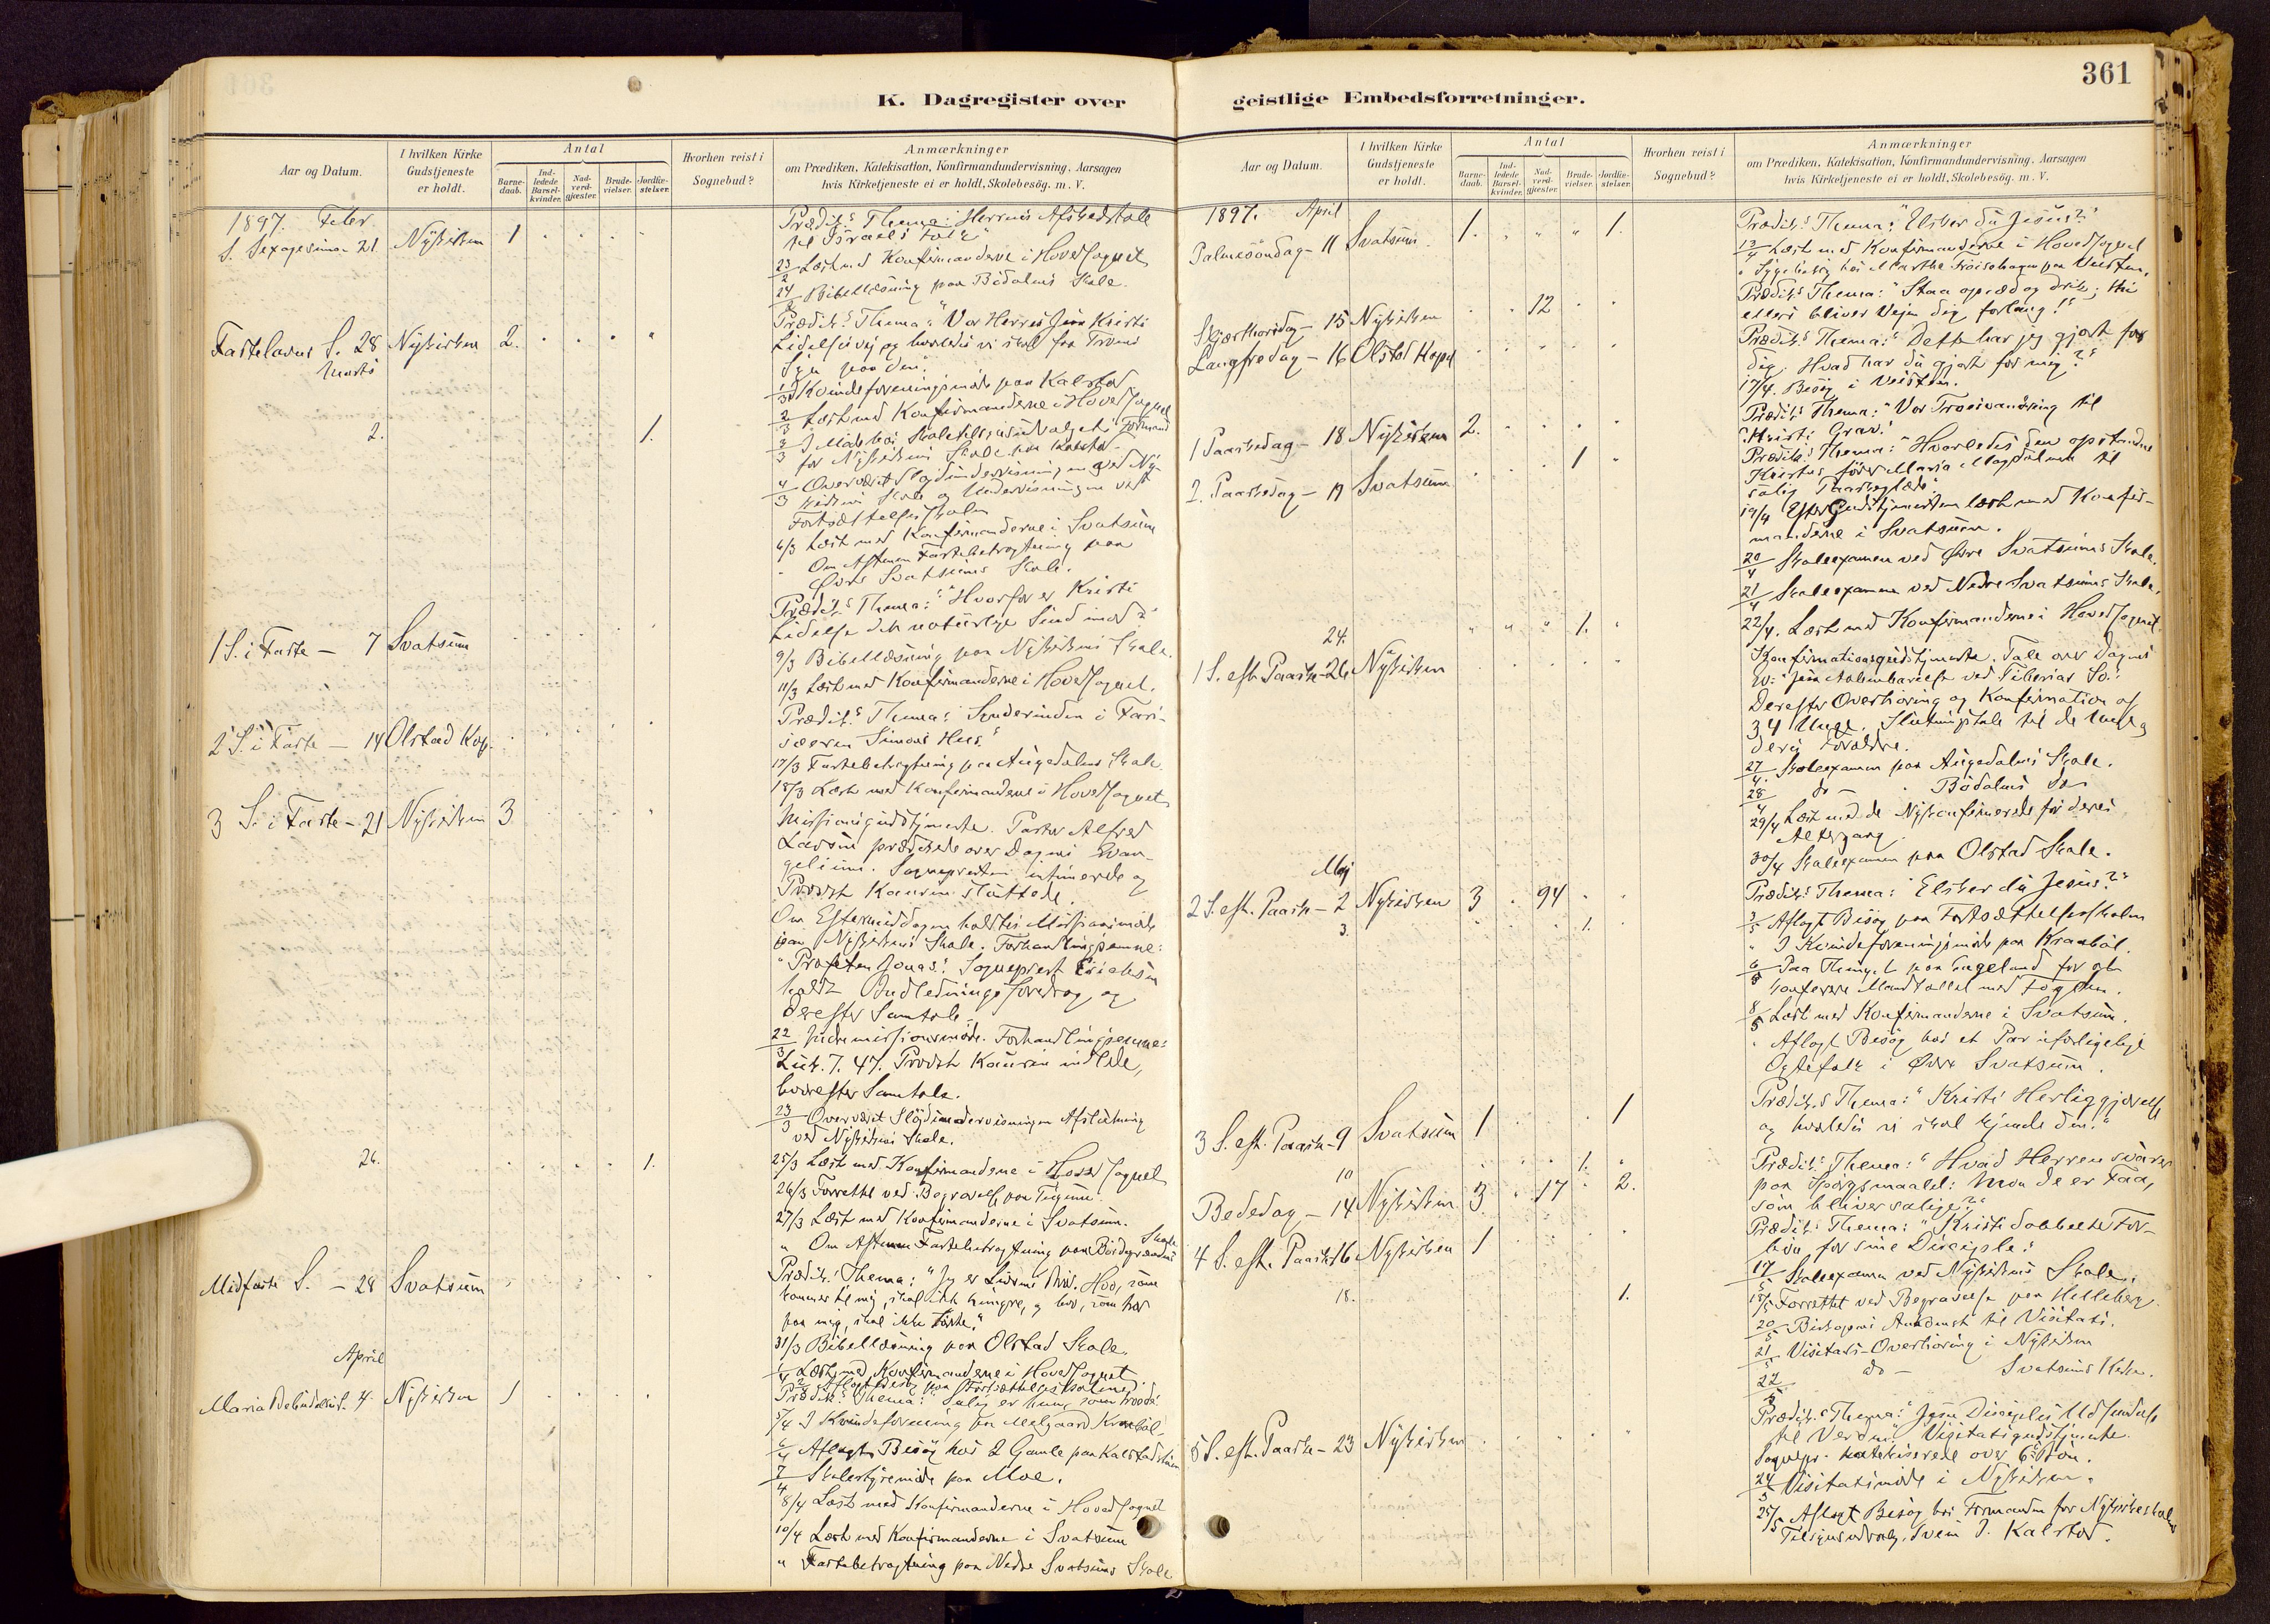 K. Dagregister over
Aar og Datum.
I hvilken Kirke Gudstjeneste er holdt.
Antal
Barne-daab.
Ind-ledede Barsel-kvinder.
Nad-verd-gjæster.
Brude-vielser.
Jordfæ-stelser.
Hvorhen reist i Sognebud?
Anmærkninger
om Prædiken, Katekisation, Konfirmandundervisning, Aarsagen
hvis Kirketjeneste ei er holdt, Skolebesög. m. V.
1897. Febr.
S. Sexagesima 21 Nykirken 1
Prædik.s Thema: Herrens Afskedstale
til Israels Folk"
23/2 Læst med Konfirmanderne i Hovedsognet
24/2 Bibellæsning paa Bödalens Skole.
Fastelavns S. 28 Nykirken 2.
Prædik.s Thema: "Vor Herres Jesu Kristi
Lidelsesvej og hvorledes vi skal faa Troens
Syn paa den."
Marts
1/3 Kvindeforeningsmöde paa Kalstad
2/3 Læst med Konfirmanderne i Hovedsognet
2. 1.
3/3 I Möde hos Skoletilsynsudvalgets Formand
for Nykirkens Skole paa Kalstad.
4/3 Overværet Slöidundervisningen ved Ny-
kirkens Skole og Undervisningen ved
Fortsættelsesskolen
6/3 Læst med Konfirmanderne i Svatsum
" Om Aftenen Fastebetragtning paa
Övre Svatsums Skole.
1 S. i Faste - 7 Svatsum
Prædik.s Thema: "Hvorfor er Kristi
Lidelse det naturlige Sind imod?"
9/3 Bibellæsning paa Nykirkens Skole.
11/3 Læst med Konfirmanderne i Hovedsognet.
2 S. i Faste - 14 Olstad Kap.
Prædik.s Thema: Synderinden i Fari-
sæeren Simons Hus."
17/3 Fastebetragtning paa Augedalens Skole
18/3 Læst med Konfirmanderne i Hovedsognet
3 S. i Faste - 21 Nykirken 3
Missionsgudstjeneste. Pastor Alfred
Larsen prædikede over Dagens Evan-
gelium. Sognepresten intonerede og
Provst Kaurin sluttede.
Om Eftermiddagen holdtes Missionsmöde
paa Nykirkens Skole. Forhandlingsemne:
"Profeten Jonas." Sogneprest Eriksen
holdt Indledningsforedrag og
derefter Samtale.
22/3 Indremissionsmöde. Forhandlingsemne:
Luk. 7. 47. Provst Kaurin indledede,
hvorefter Samtale.
23/3 Overværet Slöjdundervisningens Afslutning
ved Nykirkens Skole.
25/3 Læst med Konfirmanderne i Hovedsognet
26. 1.
26/3 Forrettet ved Begravelse paa
27/3 Læst med Konfirmanderne i Svatsum.
" Om Aftenen Fastebetragtning paa Skole
Midfaste S. - 28 Svatsum
Prædik.s Thema: "Jeg er Livsens Bröd. Hvo, som
kommer til mig, skal ikke hungre, og hvo, som tror
paa mig, skal ikke törste."
31/3 Bibellæsning paa Olstad Skole.
April
1/4 Læst med Konfirmanderne i Hovedsognet
2/4 Aflagt Besög paa Fortsættelsesskolen
Maria Bebudelsesf. 4. Nykirken 1
Prædik.s Thema: Salig er hun, som troede.
5/4 I Kvindeforening paa Melgaard Kraaböl
6/4 Aflagt Besög hos 2 Gamle paa Kalstad
7/4 Skolestyremöde paa Moe.
8/4 Læst med Konfirmanderne i Hovedsognet
10/4 Læst med Konfirmanderne i Svatsum
" Fastebetragtning paa Nedre Svatsums Skole
361
geistlige Embedsforretninger.
Aar og Datum.
I hvilken Kirke Gudstjeneste er holdt.
Antal
Barne-daab.
Ind-ledede Barsel-kvinder.
Nad-verd-gjæster.
Brude-vielser.
Jordfæ-stelser.
Hvorhen reist i Sognebud?
Anmærkninger
om Prædiken, Katekisation, Konfirmandundervisning, Aarsagen
hvis Kirketjeneste ei er holdt, Skolebesög. m. V.
1897. April
Palmesöndag - 11 Svatsum. 1. 1.
Prædik.s Thema: "Elsker du Jesus?"
13/4 Læst med Konfirmanderne i Hovedsognet
" Sygebesög hos Marthe paa
Skjærthorsdag - 15 Nykirken 12
Prædik.s Thema: "Staa op, æd og drik; thi
ellers bliver Vejen dig forlang!"
Langfredag - 16 Olstad Kapel
Prædik.s Thema: "Dette har jeg gjort for
dig. Hvad har du gjort for mig?"
17/4. Besög i Veisten.
1 Paaskedag - 18 Nykirken 2.
Prædik.s Thema: "Vor Troesvandring til
Kristi Grav."
2. Paaskedag - 19 Svatsum 1
Prædik.s Thema: "Hvorledes den opstandne
Kristus förer Maria Magdalena til
salig Paaskeglæde"
19/4 Efter Gudstjenesten læst med Konfir-
manderne i Svatsum.
20/4 Skoleexamen ved Övre Svatsums Skole.
21/4 Skoleexamen ved Nedre Svatsums Skole.
22/4. Læst med Konfirmanderne i Hovedsognet.
24. 1.
1 S. eft. Paaske - 26 Nykirken
Konfirmationsgudstjeneste. Tale over Dagens
Ev: Jesu Aabenbarelse ved Tiberias Sö.
Derefter Overhöring og Konfirmation af
34 Unge. Slutningstale til de Unge og
deres Forældre.
27/4. Skoleexamen paa Augedalens Skole.
28/4 do - Bödalens do
29/4 Læst med de Nykonfirmerede för deres
Altergang
30/4 Skoleexamen paa Olstad Skole.
Maj
2 S. eft. Paaske - 2 Nykirken 3 94
Prædik.s Thema: "Elsker du Jesus?"
3. 1.
3/5 Aflagt Besög paa Fortsættelsesskolen
" I Kvindeforeningsmöde paa Kraaböl.
6/5 Paa Thinget paa Engeland for at
konferere Mandtallet med Fogden.
8/5 Læst med Konfirmanderne i Svatsum.
" Aflagt Besög hos et Par uforligelige
Ægtefolk i Övre Svatsum.
3 S. eft. Paaske - 9 Svatsum 1 1
Prædik.s Thema: "Kristi Herliggjörelse
og hvorledes vi skal kjende den."
10 1.
Bededag - 14 Nykirken 3. 17 2.
Prædik.s Thema: "Hvad Herren svarer
paa Spörgsmaalet: Mon de er Faa,
som bliver salige?"
4 S. eft. Paaske 16 Nykirken 1
Prædik.s Thema: "Kristi dobbelte For-
bön for sine Disciple."
17/5 Skoleexamen ved Nykirkens Skole.
18. 1.
18/5 Forrettet ved Begravelse paa Helleberg.
20/5 Biskopens Ankomst til Visitats.
21/5 Visitats-Overhöring i Nykirken
22/5 do - Svatsums Kirke.
5 S. eft. Paaske - 23 Nykirken
Prædik.s Thema: Jesu Disciples Udsendelse
til Verden. Visitatsgudstjeneste.
Sognepr. katekiserede over 6te Bön.
24/5 Visitatsmöde i Nykirken.
25/5 Aflagt Besög hos Formanden for Nykirkeskolens
Tilsynsudvalg, Svein J. Kalstad.